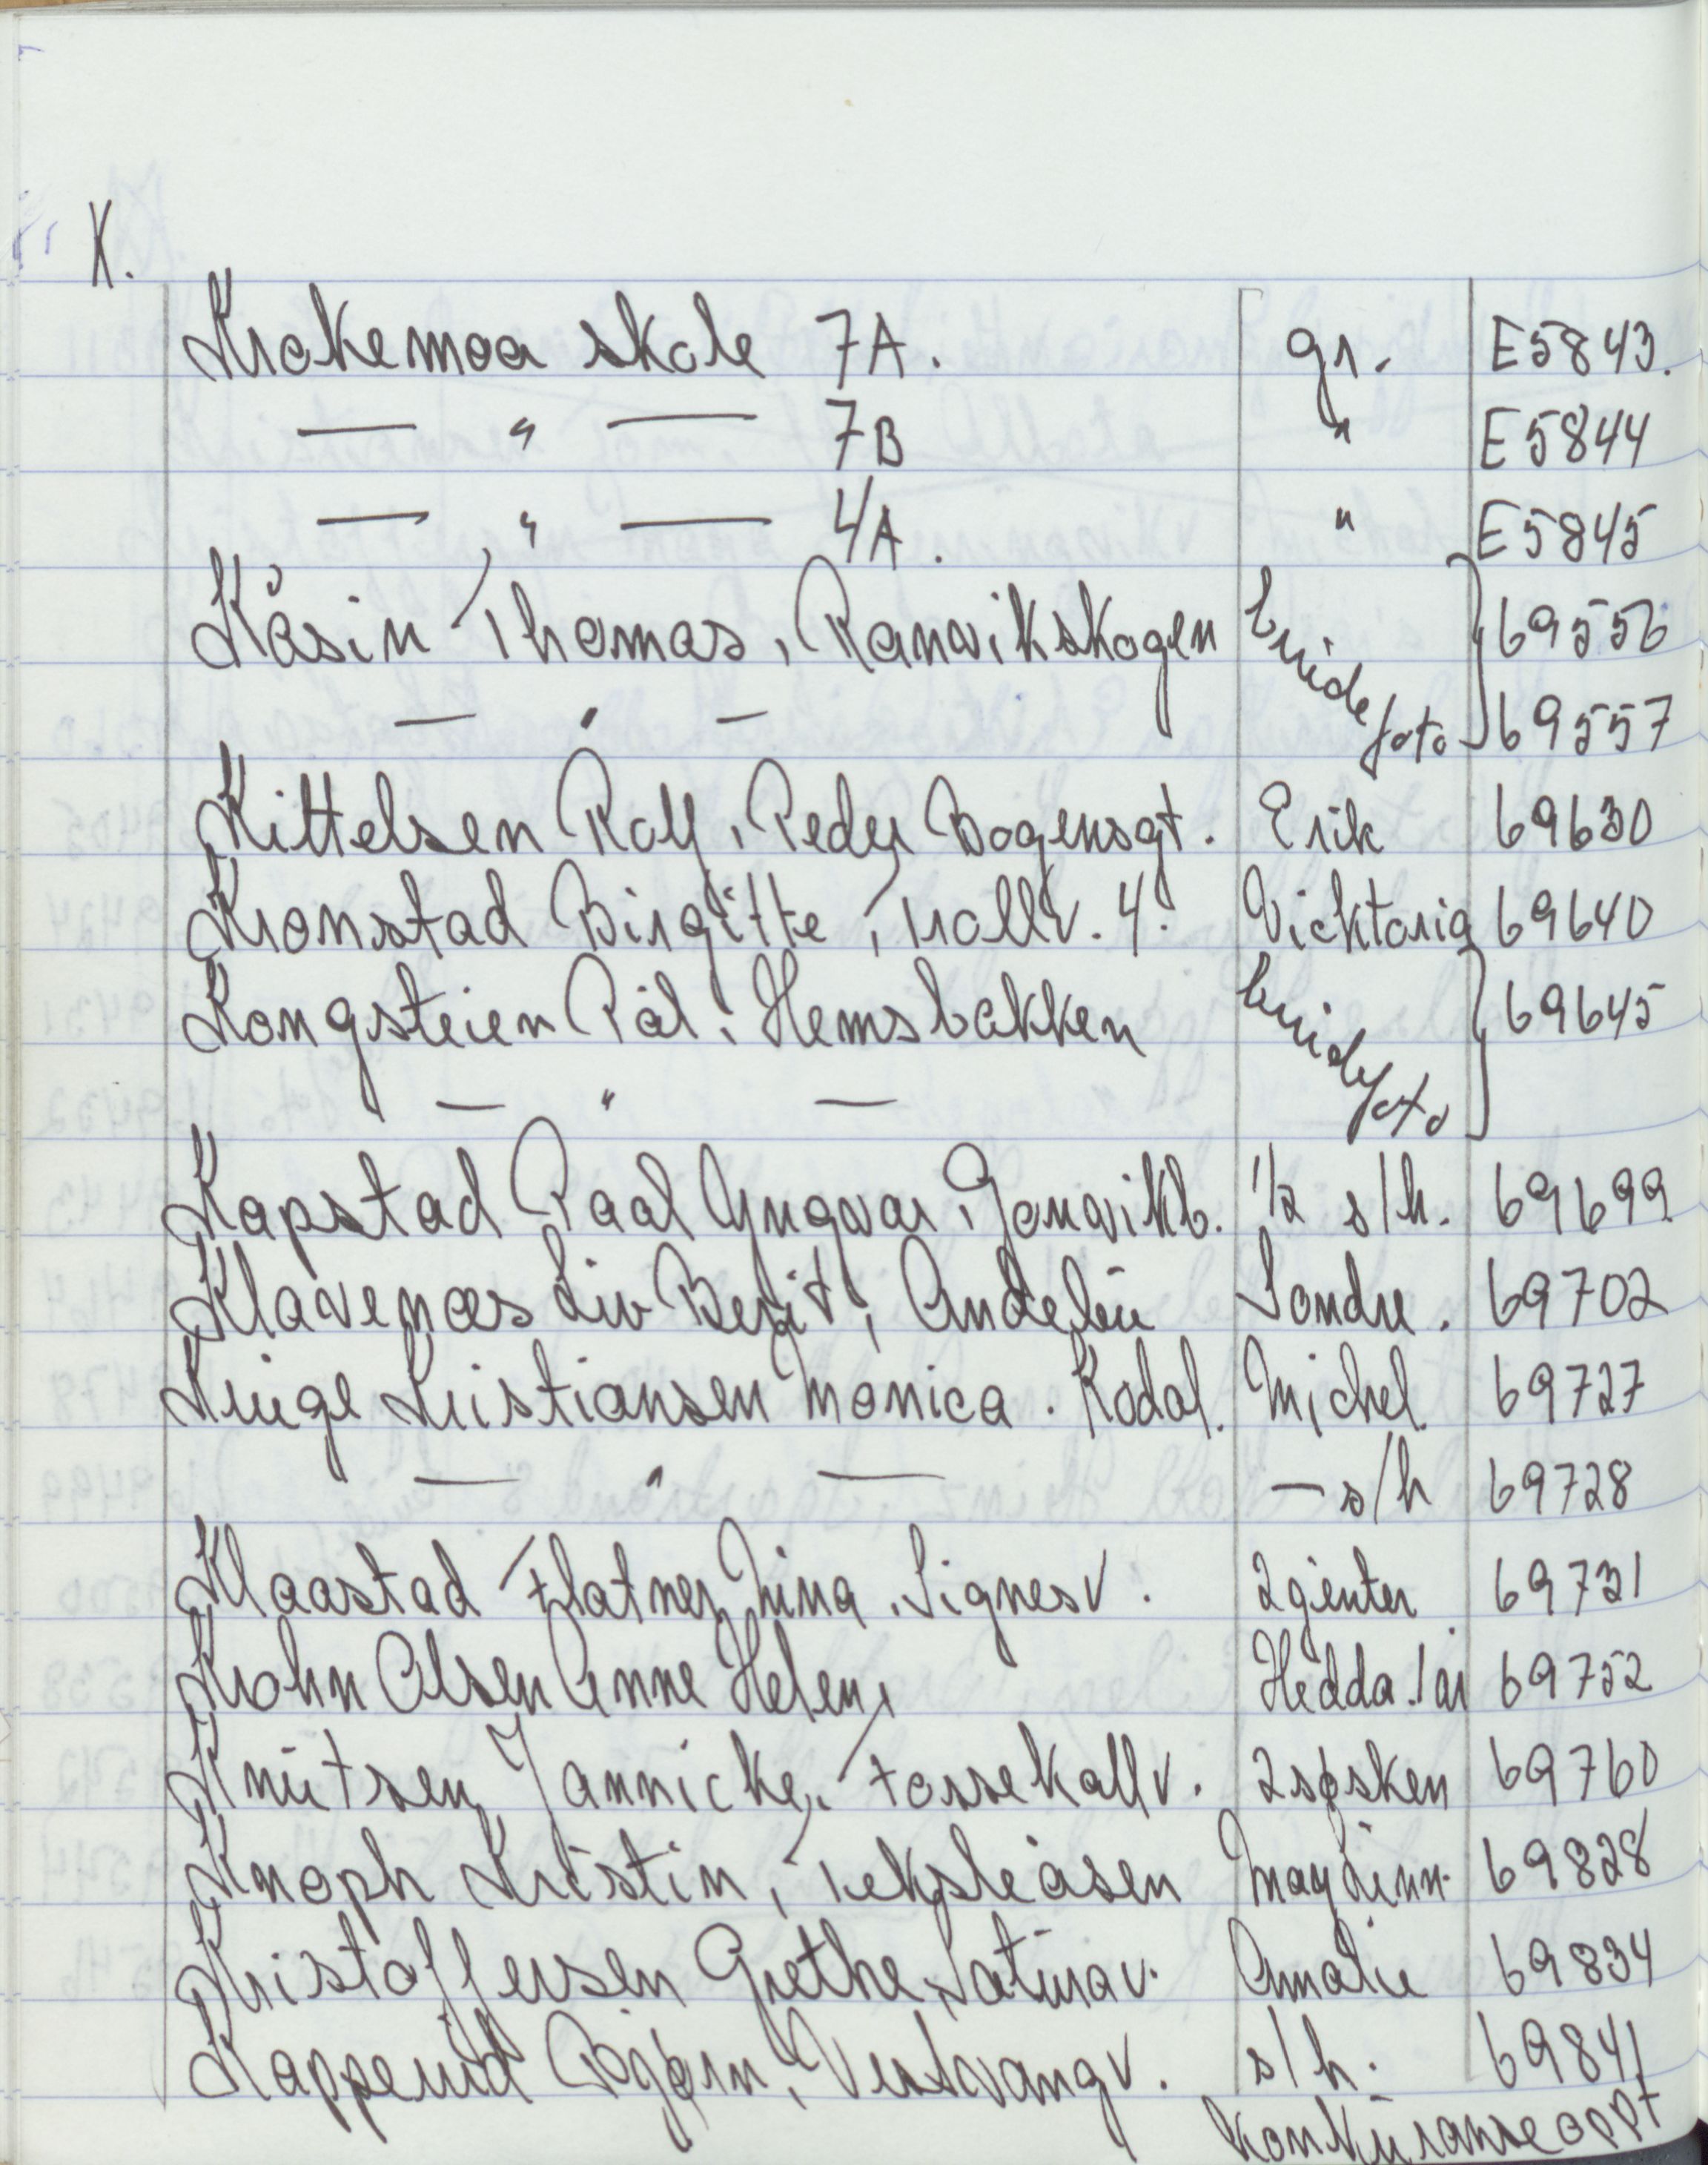 K.
Krokemoa skole 7A. gr. E5843.
— " — 7B " E5844
— " — 4A. " E5845
Kåsin Thomas, Ranvikskogen brude foto 69556
— " — 69557
Kittelsen Rolf, Peder Bogensgt. Erik 69630
Kronstad Birgitte, Trollv. 4. Vicktoria 69640
Kongsteien Pål, Hemsbakken brudefoto 69645
— " —
Kapstad Paal Yngvar, Gonvikb. 1/2 s/h. 69699
Klavenæs Liv Berit, Andebu Sondre. 69702
Kruge Kristiansen Monica. Kodal. Michel. 69727
— " — — s/h 69728
Klaastad Flatner Nina, Signesv. 2 jenter 69731
Krohn Olsen Anne Helen, Hedda 1 år 69752
Knutsen Jannicke, Fossekallv. 2 søsken 69760
Knoph Kristin, Teksleåsen May Linn. 69828
Kristoffersen Grethe, Saturnv. Amalie 69834
Kapperud Bjørn, Vestvangv. s/h. 69841
konkuranseoppt